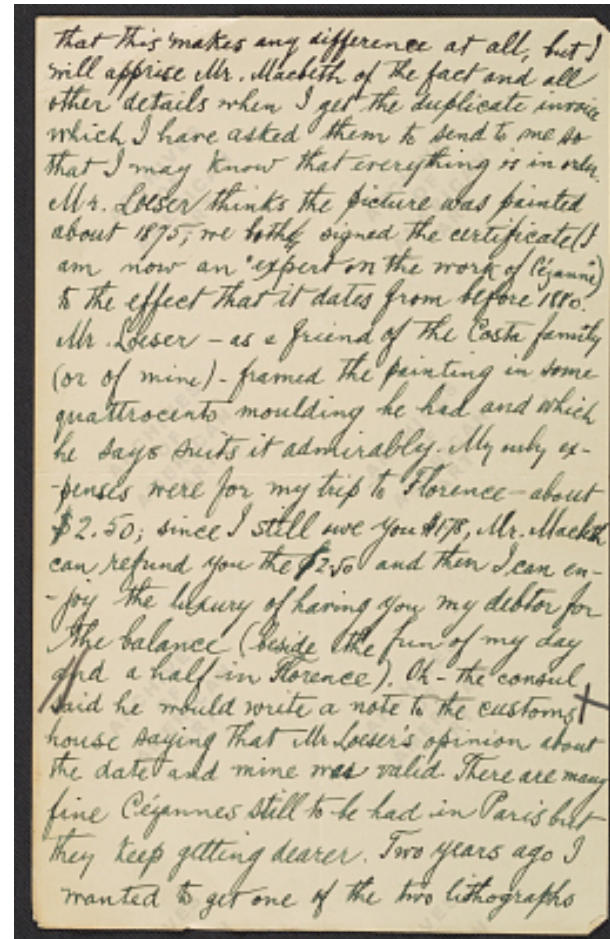 that this makes any difference at all, but I
will apprise Mr. Macbeth of the fact and all
other details when I get the duplicate invoice
which I have asked them to send to me so
that I may know that everything is in order.
Mr. Loeser thinks the picture was painted
about 1875; we both signed the certificate (I
am now an "expert on the work of Cézanne")
to the effect that it dates from before 1880.
Mr. Loeser - as a friend of the Costa family
(or of mine) - framed the painting in some
quattrocento moulding he had and which
he says suits it admirably. My only ex-
-penses were for my trip to Florence - about
$2.50; since I still owe you $1.78, Mr. Macbeth
can refund you the $2.50 and then I can en-
-joy the luxury of having you my debtor for
the balance (beside the fun of my day
and a half in Florence). Oh - the consul
said he would write a note to the customs
house saying that Mr Loeser's opinion about
the date and mine was valid. There are many
fine Cézannes still to be had in Paris but
they keep getting dearer. Two years ago I
wanted to get one of the two lithographs